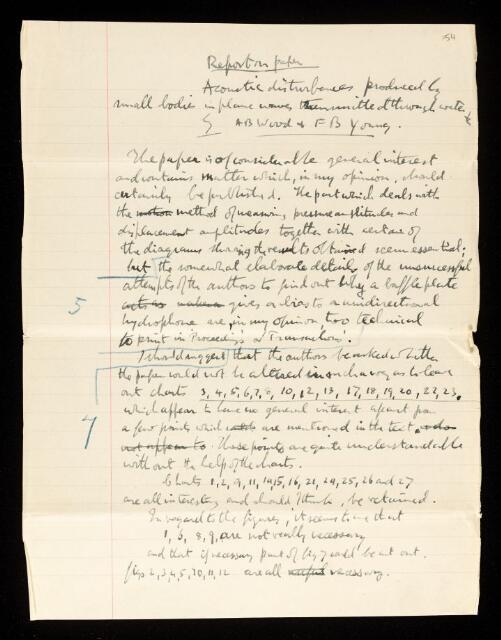 54
Report on paper
Acoustic disturbances produced by
small bodies in plane waves transmitted through water &c
by AB Wood & FB Young.
The paper is of considerable general interest
and contains matter which, in my opinion, should
certainly be published. The part which deals with
the motion method of measuring pressure amplitudes and
displacement amplitudes together with certain of
the diagrams showing the results obtained seem essential;
but the somewhat elaborate details of the unsuccessful
attempts of the authors to find out why a baffle plate
5
gives a bias to a unidirectional
hydrophone are, in my opinion, too technical
to print in Proceedings or Transactions.
I should suggest that the authors be asked whether
the paper could not be altered in such a way as to leave
out charts 3, 4, 5, 6, 7, 8, 10, 12, 13, 17, 18, 19, 20, 22, 23,
which appear to have no general interest apart from
4
a few points which are mentioned in the text
not appear to. These points are quite understandable
without the help of the charts.
Charts 1, 2, 9, 11, 14, 15, 16, 21, 24, 25, 26 and 27
are all interesting and should I think, be retained.
In regard to the figures, it seems to me that
1, 6, 8, 9, are not really necessary
and that if necessary part of fig 7 could be cut out.
figs 2, 3, 4, 5, 10, 11, 12 are all useful necessary.